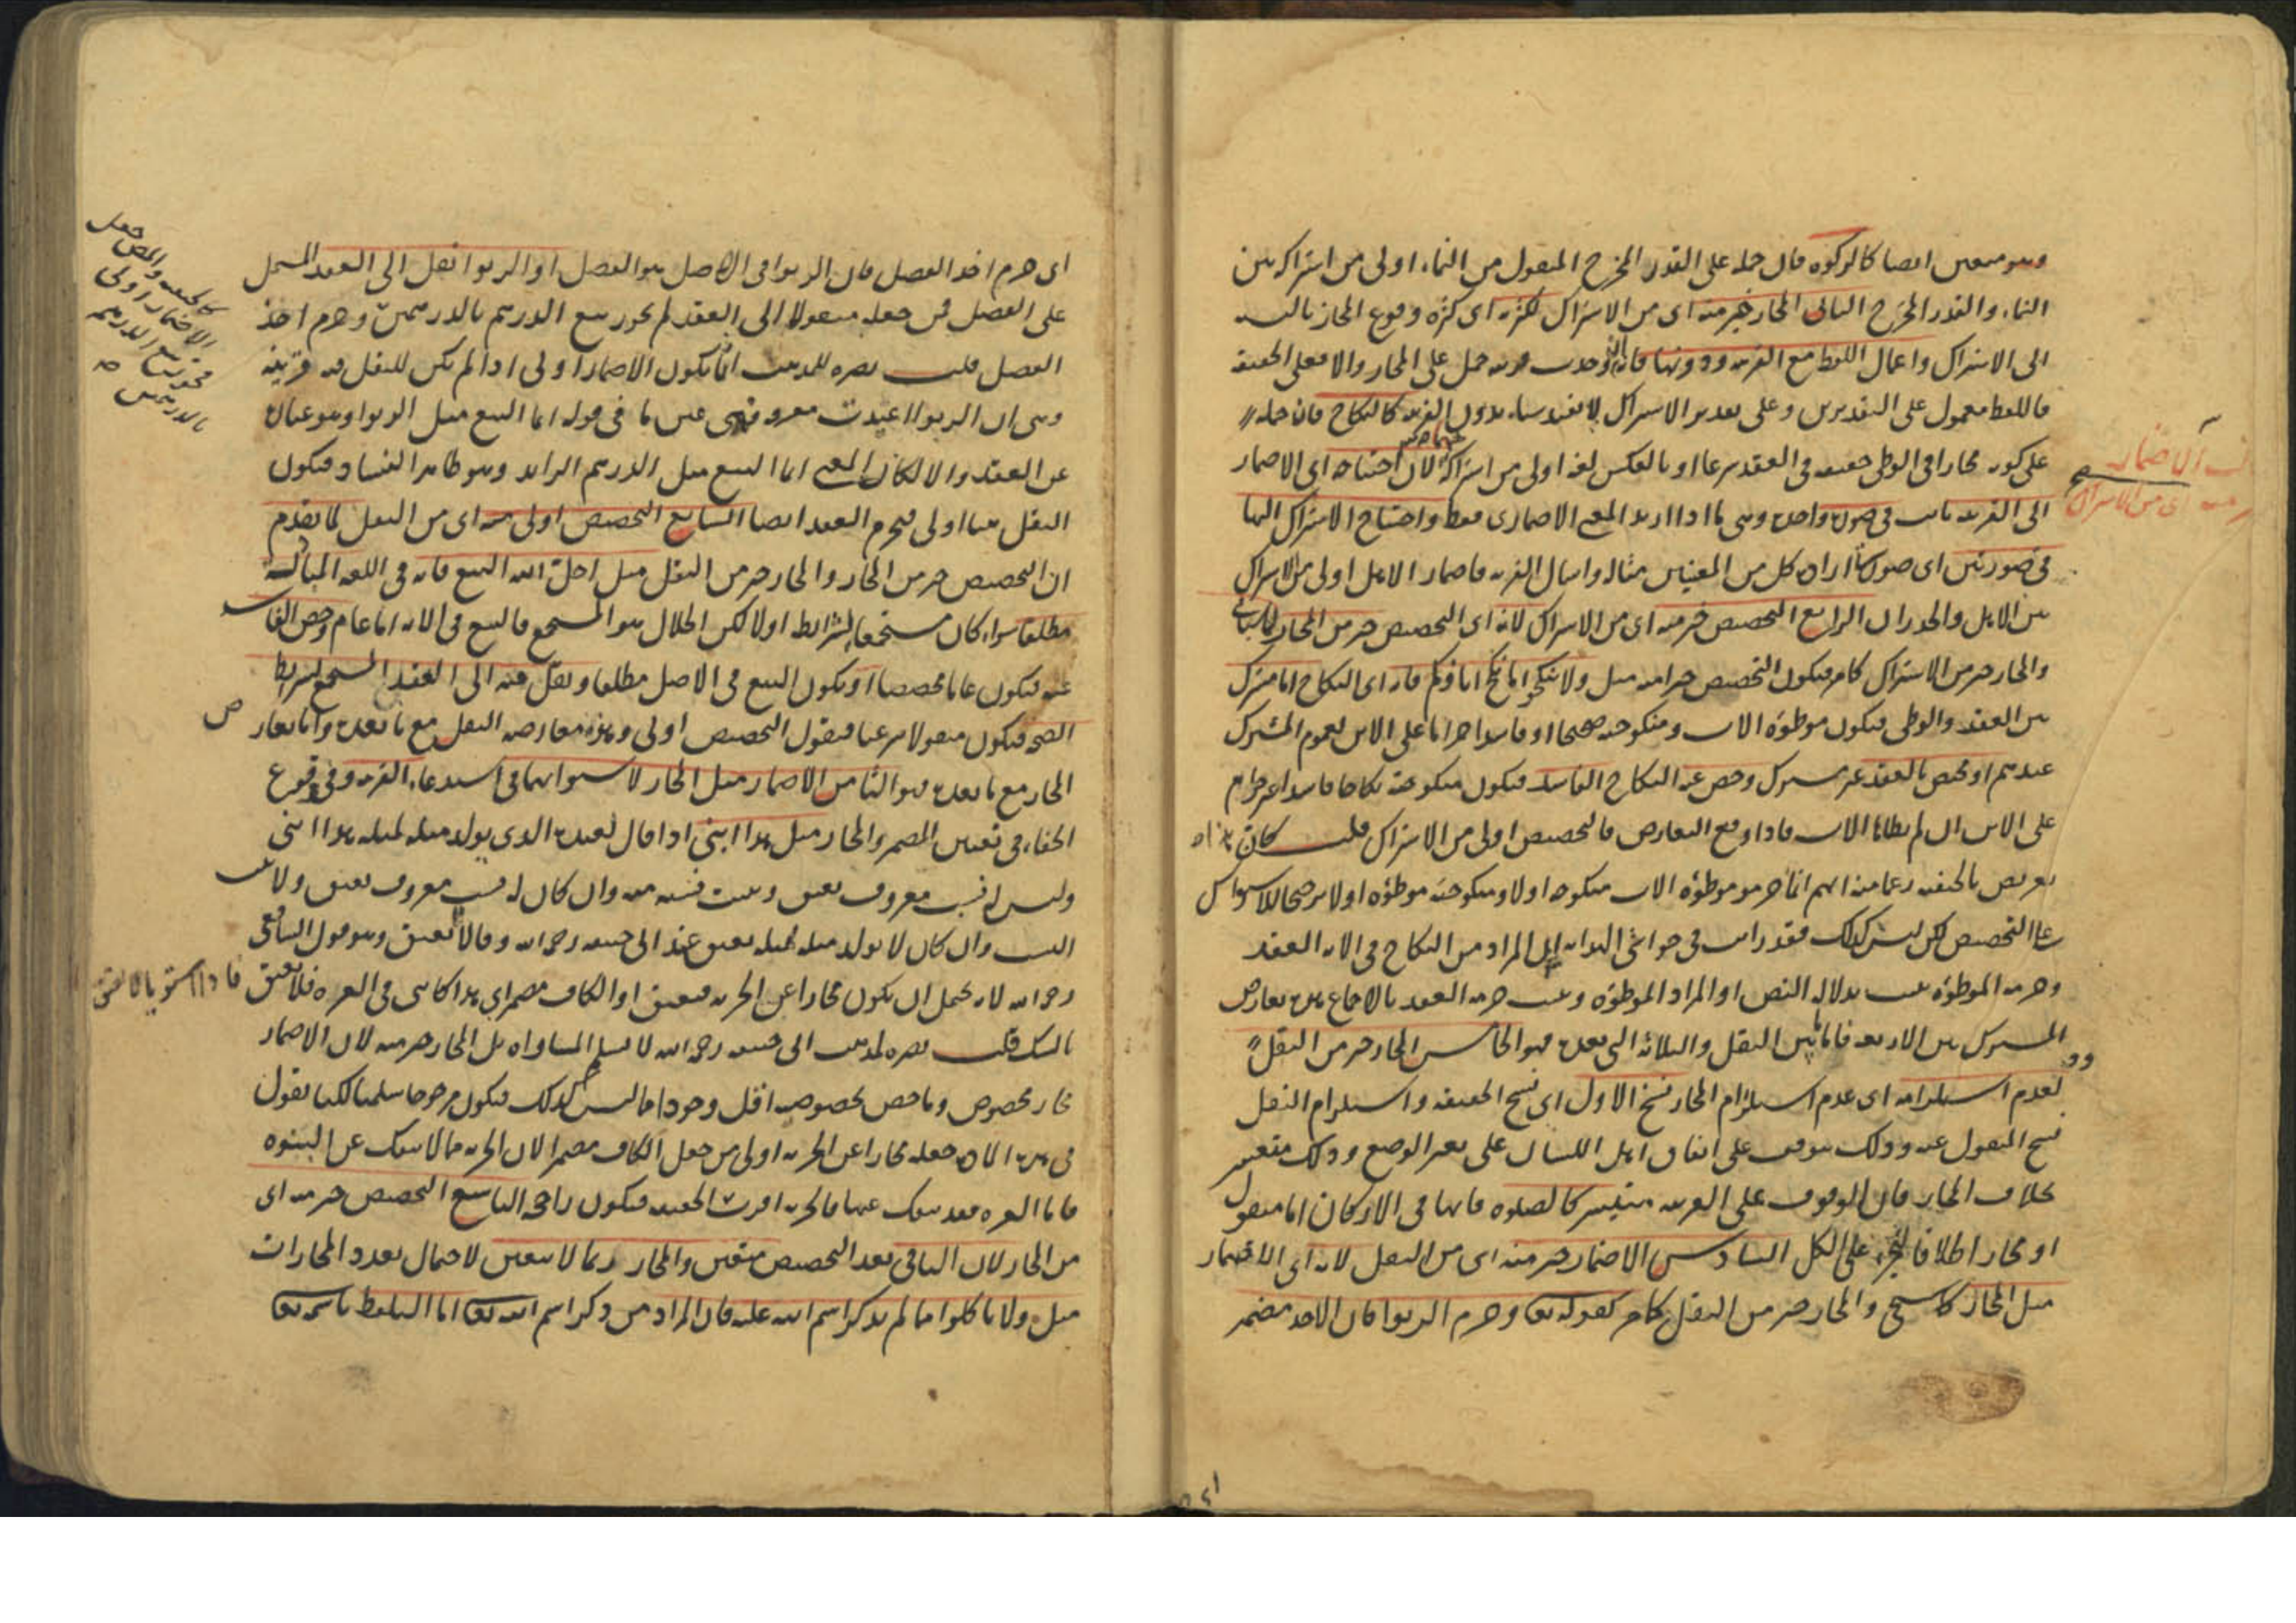 وهو متعين ايضا كالزكوة فان حمله على القدر المخرج المنقول من النماء اولى من اشتراكه بين
النماء والقدر المخرج الثانى المجاز خير منه اى من الاشتراك لكثرته اى كثرة وقوع المجاز بالنسبة
الى الاشتراك واعمال اللفظ مع القرينة ودونها فانه ان وجدت قرينة حمل على المجاز والا فعلى الحقيقة
فاللفظ معمول على التقديرين وعلى تقدير الاشتراك لا يفيد شيئا بدون القرينة كالنكاح فان حمله
على كونه مجازا فى الوطى حقيقة فى العقد شرعا او بالعكس لغة اولى من اشتراكه لان احتياجه اى الاضمار
الى القرينة ثابت فى صورة واحدة وهى ما اذا اريد المعنى الاضمارى فقط واحتياج الاشتراك اليها
فى صورتين اى صورتى ارادة كل من المعنيين مثاله واسال القرية فاضمار الاهل اولى من الاشتراك
بين الاهل والجدران الرابع التخصيص خير منه اى من الاشتراك لانه اى التخصيص خير من المجاز كما سيأتى
والمجاز خير من الاشتراك كما مر فيكون التخصيص خيرا منه مثل ولا تنكحوا ما نكح اباؤكم فانه اى النكاح اما مشترك
بين العقد والوطى فيكون موطوءة الاب ومنكوحته صحيحا او فاسدا حراما على الابن لعموم المشترك
عندهم او مختص بالعقد غير مشترك وخص عنه النكاح الفاسد فيكون منكوحته نكاحا فاسدا غير حرام
على الابن ان لم يطاها الاب فاذا وقع التعارض فالتخصيص اولى من الاشتراك قلت كان هذا
تعريض بالحنفية زعما منه انهم انما حرموا موطوءة الاب منكوحة اولا ومنكوحته موطوءة اولا ترجيحا للاشتراك
على التخصيص لكن ليس كذلك فقد رايت فى حواشى الهداية ان المراد من النكاح فى الاية العقد
وحرمة الموطوءة ثبتت بدلالة النص او المراد الموطوءة وثبت حرمة العقد بالاجماع بين تعارض
المشترك بين الاربعة فاما بين النقل والثلاثة التى بعده فهو الخامس المجاز خير من النقل
لعدم استلزامه اى عدم استلزام المجاز نسخ الاول اى نسخ الحقيقة واستلزام النقل
نسخ المنقول عنه وذلك موقوف على اتفاق اهل اللسان على تغير الوضع وذلك متعسر
بخلاف المجاز فان الوقوف على القرينة متيسر كالصلوة فانها فى الاركان اما منقول
او مجاز اطلاقا للجزء على الكل السادس الاضمار خير منه اى من النقل لانه اى الاضمار
مثل المجاز كما سيجئ والمجاز خير من النقل كما مر كقوله تعا وحرم الربوا فان الاخذ مضمر
اى حرم اخذ الفضل فان الربوا فى الاصل هو الفضل او الربوا نقل الى العقد المشتمل
على الفضل فمن جعله منقولا الى العقد لم يجوز بيع الدرهم بالدرهمين وحرم اخذ
الفضل قلت نصرة للمذهب انما يكون الاضمار اولى اذا لم يكن للنقل قرينة
وهى ان الربوا اعيدت معرفة فهى عين ما فى قوله انما البيع مثل الربوا وهو عبارة
عن العقد والا لكان المعنى انما البيع مثل الدرهم الزائد وهو ظاهر الفساد فيكون
النقل هنا اولى فيحرم العقد ايضا السابع التخصيص اولى منه اى من النقل لما تقدم
ان التخصيص خير من المجاز والمجاز خير من النقل مثل احل الله البيع فانه فى اللغة المبادلة
مطلقا سواء كان مستجمعا لشرائط اولا لكن الحلال هو المستجمع فالبيع فى الاية اما عام وخص الفاسد
عنه فيكون عاما مخصصا او يكون البيع فى الاصل مطلقا ونقل منه الى العقد المستجمع لشرائط
الصحة فيكون منقولا شرعيا فنقول التخصيص اولى وهذه معارضة النقل مع ما بعده واما تعارض
المجاز مع ما بعده فهو الثامن الاضمار مثل المجاز لاستوائهما فى استدعاء القرينة وفى وقوع
الخفاء فى تعيين المضمر والمجاز مثل هذا ابنى اذا قال لعبده الذى يولد مثله لمثله هذا ابنى
وليس له نسب معروف يعتق ويثبت نسبه منه وان كان له نسب معروف يعتق ولا يثبت
النسب وان كان لا يولد مثله لمثله يعتق عند ابى حنيفة رحمه الله وقالا لا يعتق وهو قول الشافعى
رحمه الله لانه يحتمل ان يكون مجازا عن الحرية فيعتق او الكاف مضمر اى هذا كابنى فى العزة فلا يعتق فاذا استويا لا يعتق
بالشك قلت نصرة لمذهب ابى حنيفة رحمه الله لا نسلم المساواة بل المجاز خير منه لان الاضمار
مجاز مخصوص وما خص بخصوصه اقل وجودا مما ليس كذلك فيكون مرجوحا سلمنا لكنا نقول
فى هذه الاية جعله مجازا عن الحرية اولى من جعل الكاف مضمرا لان الحرية مما لا ينفك عن البنوة
فاما العزة فقد ينفك عنها فالحرية اقرب الى الحقيقة فيكون راجحا التاسع التخصيص خير منه اى
من المجاز لان الباقى بعد التخصيص متعين والمجاز ربما لا يتعين لاحتمال تعدد المجازات
مثل ولا تاكلوا مما لم يذكر اسم الله عليه فان المراد من ذكر اسم الله تعا اما التلفظ باسمه تعا